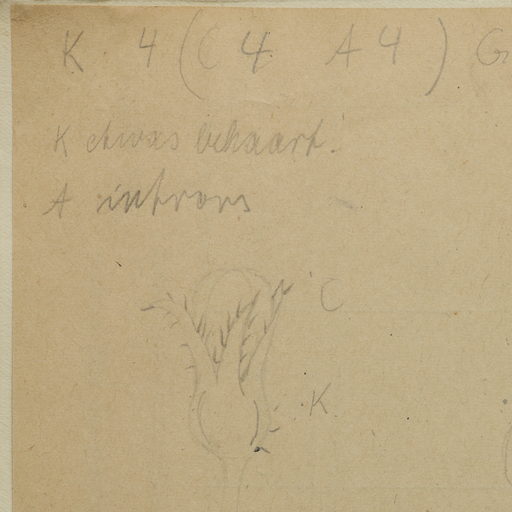 K 4 (C 4 A 4) G
K etwas behaart.
A intrors
C
K